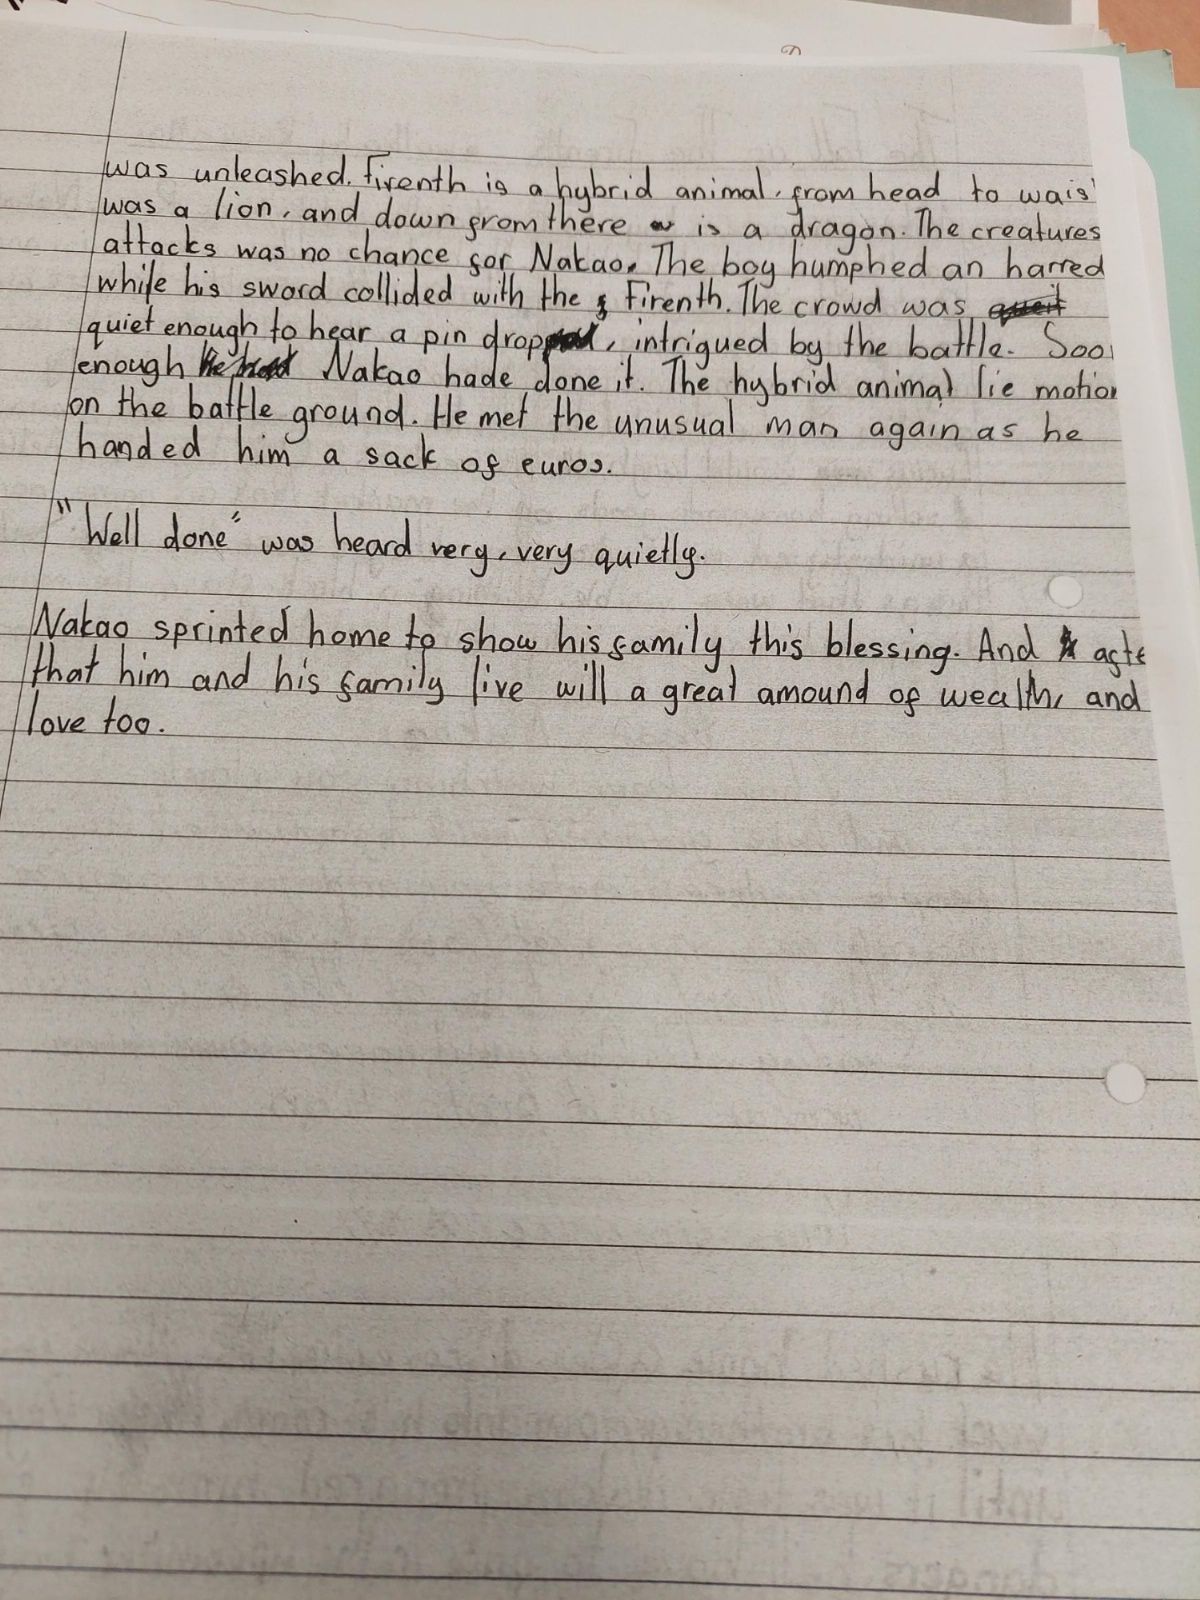 was unleashed. Firenth is a hybrid animal, from head to wais
was a lion, and down from there is a dragon. The creatures
attacks was no chance for Nakao. The boy humphed an harred
while his sword collided with the Firenth. The crowd was
quiet enough to hear a pin drop, intrigued by the battle. Soo
enough Nakao hade done it. The hybrid animal lie motion
on the battle ground. He met the unusual man again as he
handed him a sack of euros.
"Well done" was heard very, very quietly.
Nakao sprinted home to show his family this blessing. And afte
that him and his family live will a great amound of wealth, and
love too.